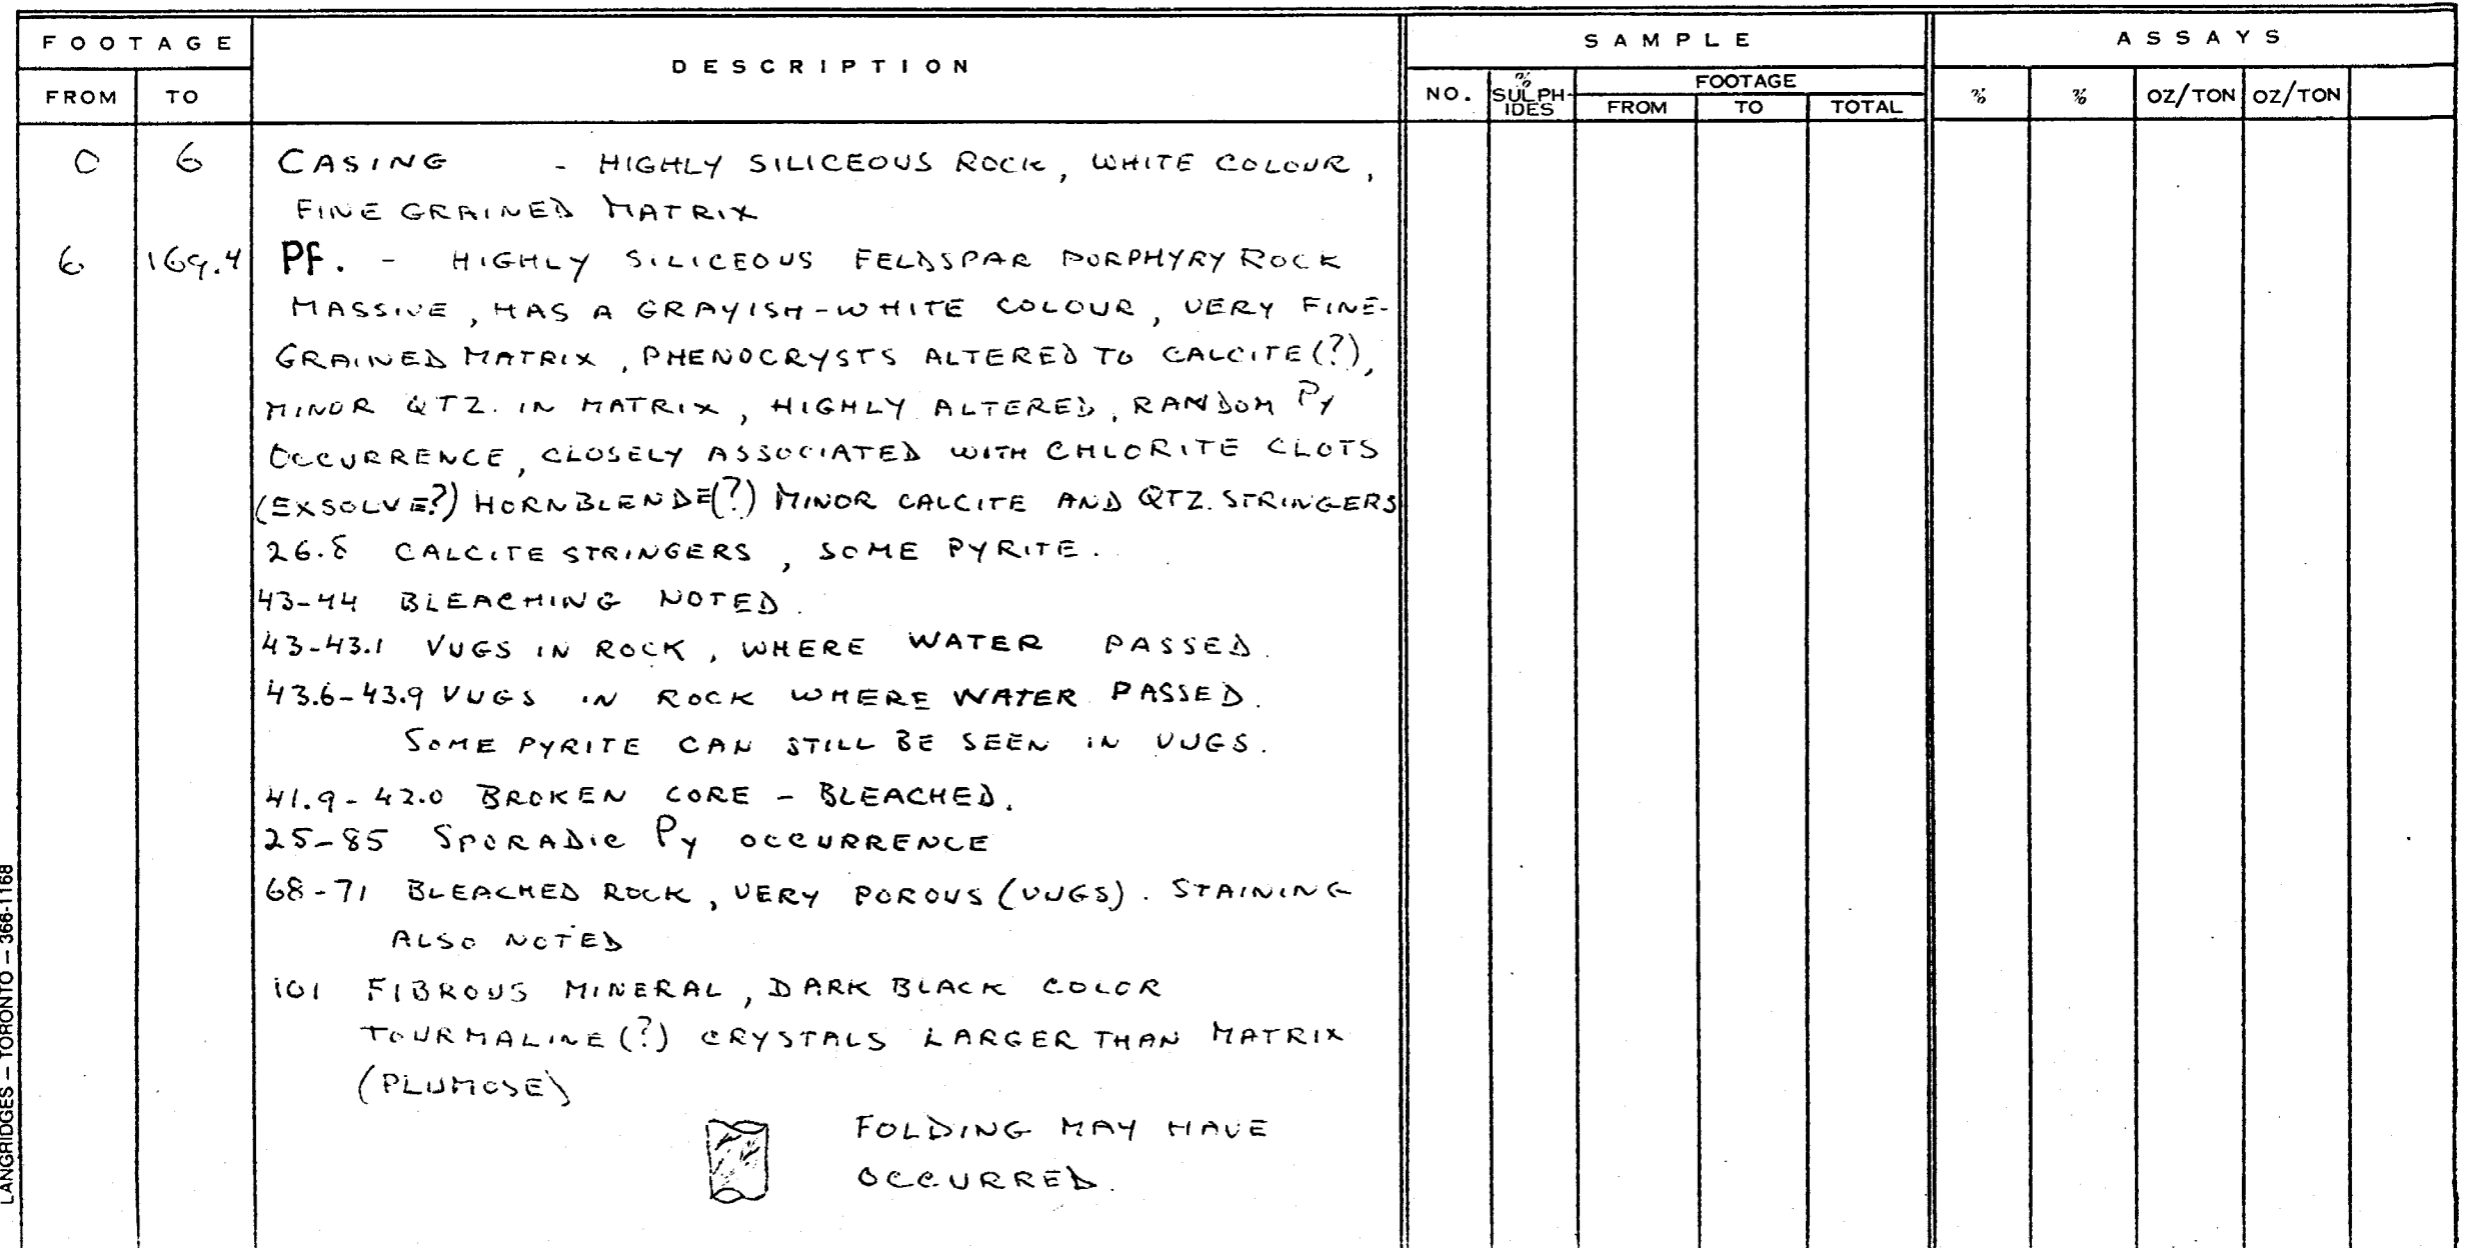 FOOTAGE
DESCRIPTION
SAMPLE
ASSAYS
FROM TO
NO.
% SULPH-
IDES
FOOTAGE
FROM TO TOTAL
% % OZ/TON OZ/TON
0 6 CASING - HIGHLY SILICEOUS ROCK, WHITE COLOUR,
FINE GRAINED MATRIX
6 169.4 Pf. - HIGHLY SILICEOUS FELDSPAR PORPHYRY ROCK
MASSIVE, HAS A GRAYISH-WHITE COLOUR, VERY FINE-
GRAINED MATRIX, PHENOCRYSTS ALTERED TO CALCITE(?),
MINOR QTZ. IN MATRIX, HIGHLY ALTERED, RANDOM Py
OCCURRENCE, CLOSELY ASSOCIATED WITH CHLORITE CLOTS
(EXSOLVE?) HORNBLENDE(?) MINOR CALCITE AND QTZ. STRINGERS
26.8 CALCITE STRINGERS, SOME PYRITE.
43-44 BLEACHING NOTED.
43-43.1 VUGS IN ROCK, WHERE WATER PASSED.
43.6-43.9 VUGS IN ROCK WHERE WATER PASSED.
SOME PYRITE CAN STILL BE SEEN IN VUGS.
41.9-42.0 BROKEN CORE - BLEACHED.
25-85 SPORADIC Py OCCURRENCE
68-71 BLEACHED ROCK, VERY POROUS (VUGS). STAINING
ALSO NOTED
101 FIBROUS MINERAL, DARK BLACK COLOR
TOURMALINE(?) CRYSTALS LARGER THAN MATRIX
(PLUMOSE)
FOLDING MAY HAVE
OCCURRED.
LANGRIDGES - TORONTO - 366-1168